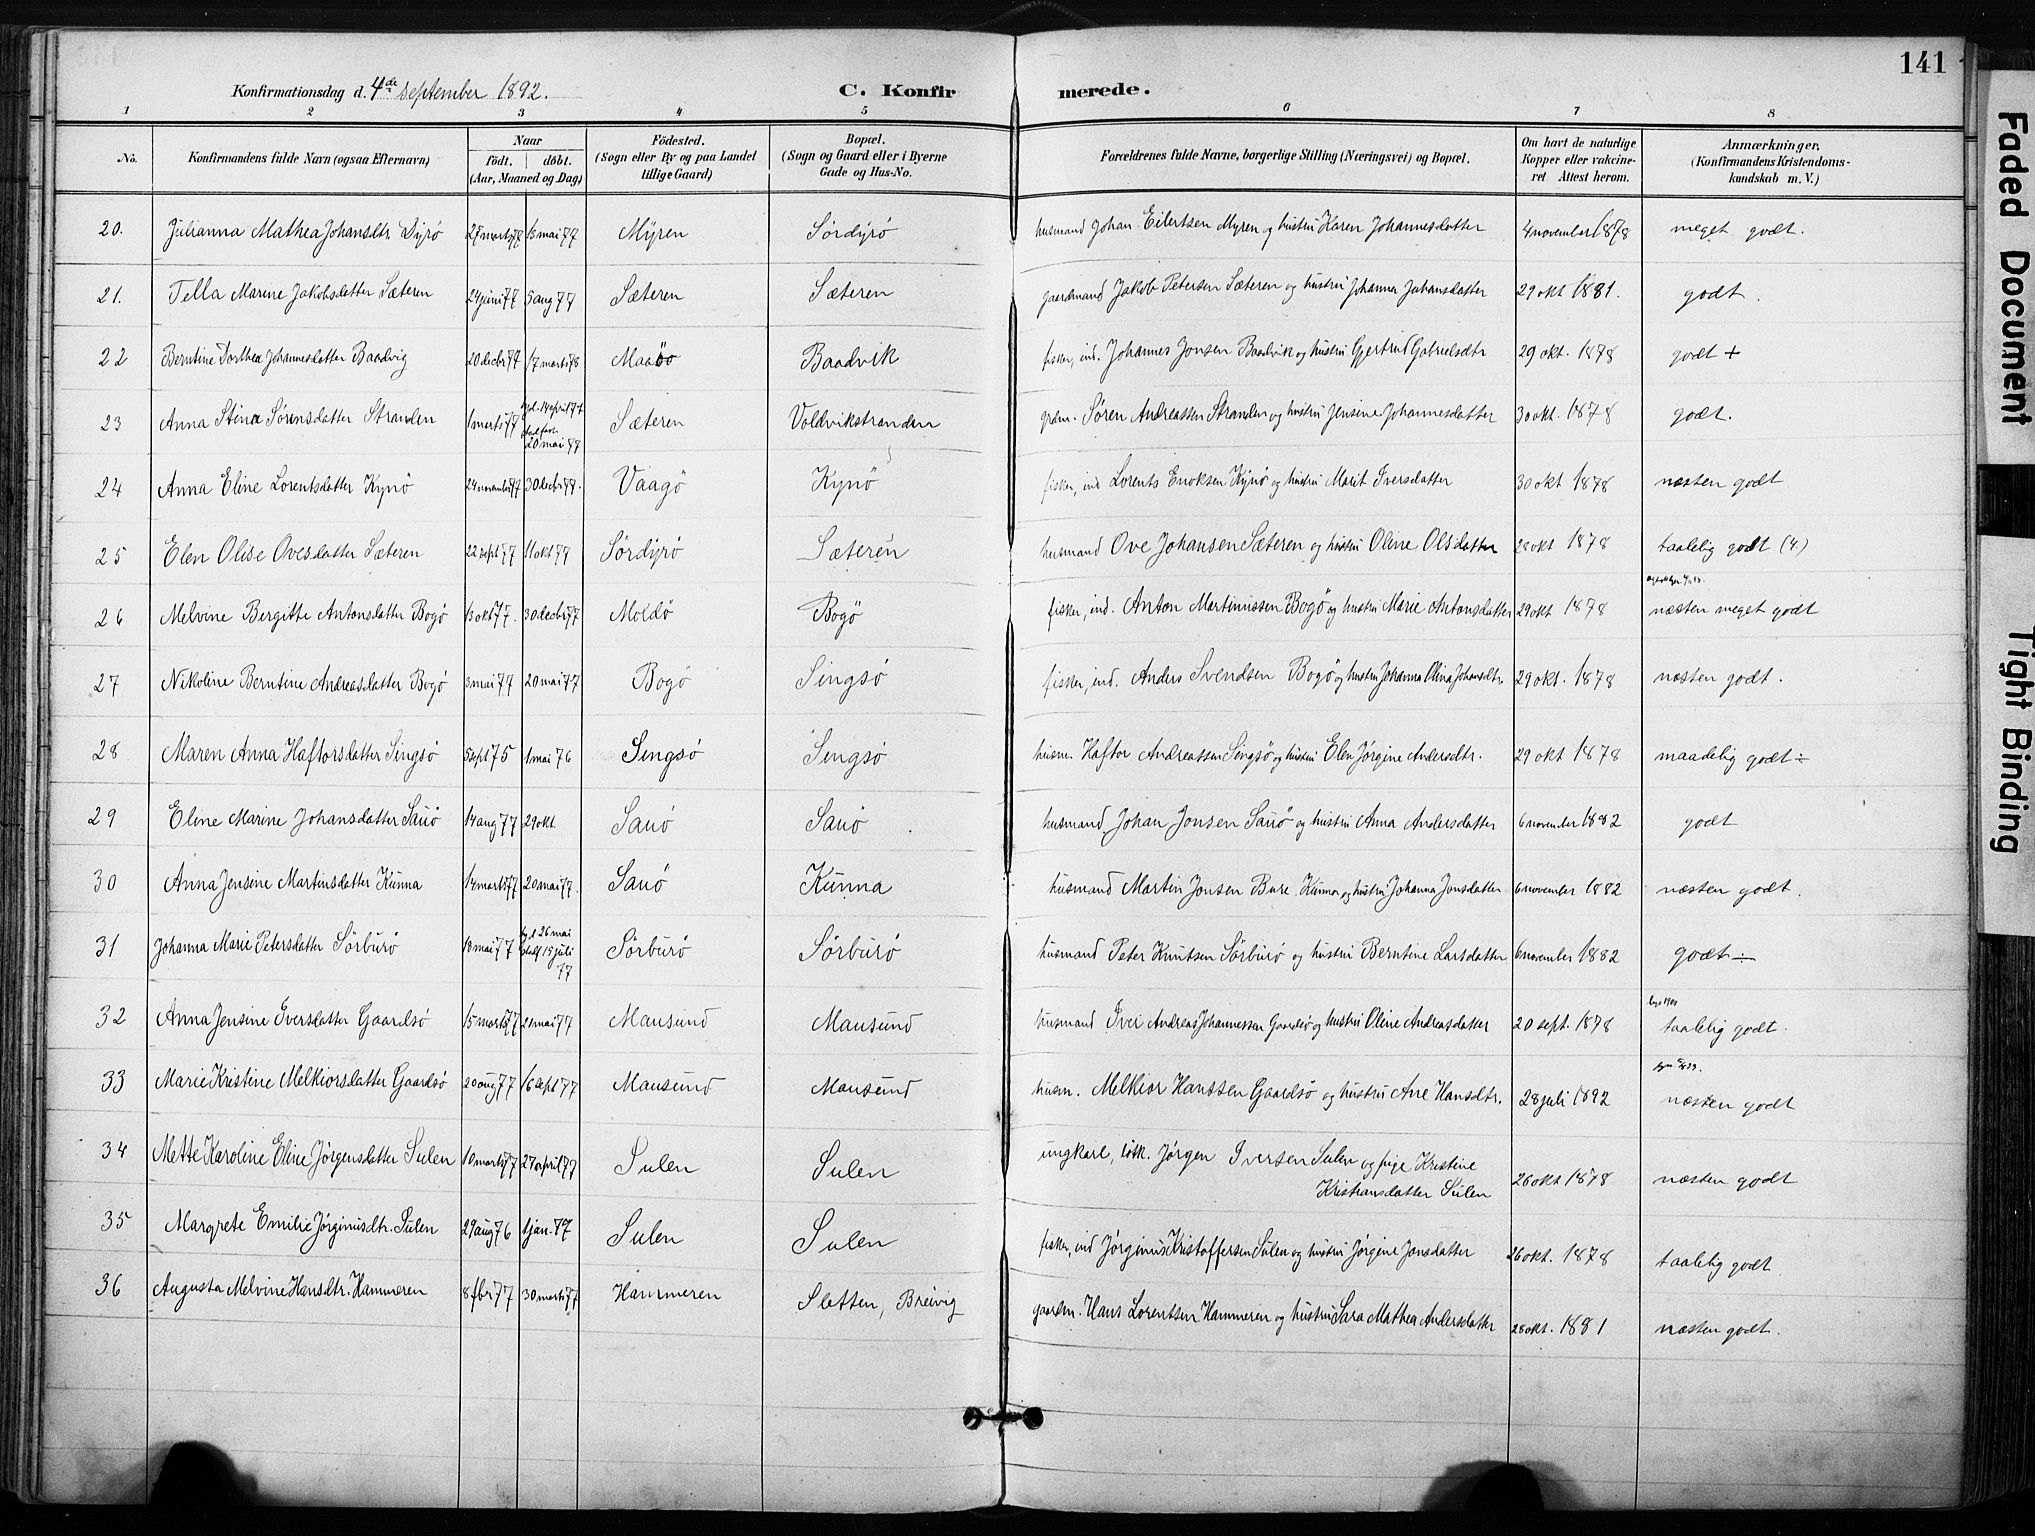 141
Konfirmationsdag d. 4de September 1892.
C. Konfirmerede.
1 2 3 4 5 6 7 8
No.
Konfirmandens fulde Navn (ogsaa Efternavn)
Naar
født. døbt.
(Aar, Maaned og Dag)
Fødested.
(Sogn eller By og paa Landet
tillige Gaard)
Bopæl.
(Sogn og Gaard eller i Byerne
Gade og Hus-No.
Forældrenes fulde Navne, borgerlige Stilling (Næringsvei) og Bopæl.
Om havt de naturlige
Kopper eller vakcine-
ret Attest herom.
Anmærkninger,
(Konfirmandens Kristendoms-
kundskab m. V.)
20. Julianna Mathea Johansdtr Dyrø 27 marts 77 13 mai 77 Myren Sørdyrø husmand Johan Eilertsen Myren og hustru Karen Johannesdatter 4 november 1878 meget godt.
21. Tella Marine Jakobsdatter Sæteren 24 juni 77 5 aug 77 Sæteren Sæteren gaardmand Jakob Petersen Sæteren og hustru Johanna Johansdatter 29 okt 1881. godt.
22 Berntine Dorthea Johannesdatter Baadvig 20 decbr 77 17 marts 78 Maaøo Baadvik fisker, ind. Johannes Jonsen Baadvik og hustru Gjertrud Gabrielsdtr 29 okt. 1878 godt +
23 Anna Stina Sørensdatter Stranden 1 marts 77 14 april 77 20 mai 77 Sæteren Voldvikstranden grdm. Søren Andreassen Stranden og hustru Jensine Johannesdatter 30 okt. 1878 godt.
24 Anna Eline Lorentsdatter Kynø 24 novembr 77 30 decbr 77. Vaagø Kynø fisker, ind Lorents Enoksen Kynø og hustru Marit Iversdatter 30 okt 1878 næsten godt
25 Elen Olise Ovesdatter Sæteren 22 sept 77 11 okt 77 Sørdyrø Sæteren husmand Ove Johansen Sæteren og hustru Oline Olsdatter 28 okt 1878 taalelig godt (4)
26 Melvine Bergitte Antonsdatter Bogø 13 okt 77. 30 decbr 77 Moldø Bogø fisker, ind. Anton Martinussen Bogø og hustru Marie Antonsdatter 29 okt 1878 næsten meget godt
27 Nikoline Berntine Andreasdatter Bogø 3 mai 77 20 mai 77 Bogø Singsø fisker, ind. Anders Svendsen Bogø og hustru Johanna Olina Johansdtr. 29 okt. 1878 næsten godt.
28 Maren Anna Haftorsdatter Singsø 5 sept 75 1 mai 76 Singsø Singsø husm. Haftor Andreassen Singsø og hustru Elen Jørgine Andersdtr. 29 okt 1878 maadelig godt ÷
29 Eline Marine Johansdatter Sauø 14 aug 77 29 okt. Sauø Sauø husmand Johan Jonsen Sauø og hustru Anna Andersdatter 6 november 1882 godt
30 Anna Jensine Martinsdatter Kunna 14 marts 77 20 mai 77. Sauø Kunna husmand Martin Jonsen Bure Kunna og hustru Johanna Jonsdatter 6 november 1882 næsten godt.
31 Johanna Marie Petersdatter Sørburø 10 mai 77 26 mai 15 juli 77 Sørburø Sørburø husmand Peter Knutsen Sørburø og hustru Berntine Larsdatter 6 november 1882 godt ÷
32 Anna Jensine Eversdatter Gaardsø 15 marts 77 21 mai 77 Mausund Mausund husmand Iver Andreas Johannessen Gaardsø og hustru Oline Andreasdatter 20 sept. 1878 taalelig godt.
33 Marie Kristine Melkiorsdatter Gaardsø 20 aug 77 16 sept 77 Mausund Mausund husm. Melkior Hanssen Gaardsø og hustru Ane Hansdtr. 28 juli 1892 næsten godt
34 Mette Karoline Eline Jørgensdatter Sulen 10 marts 77 27 april 77 Sulen Sulen ungkarl, Jørgen Iversen Sulen og pige Kristine
Kristiansdatter Sulen 26 okt 1878 næsten godt
35 Margrete Emilie Jørginusdtr. Sulen 29 aug 76 1 jan. 77 Sulen Sulen fisker, ind Jørginus Kristoffersen Sulen og hustru Jørgine Jonsdatter 26 okt. 1878 taalelig godt.
36 Augusta Melvine Hansdtr. Hammeren 8 fbr 77 30 marts 77 Hammeren Sletten, Breivig gaardm. Hans Lorentsen Hammeren og hustru Sara Mathea Andersdatter 28 okt. 1881 næsten godt.
Faded Document
Tight Binding